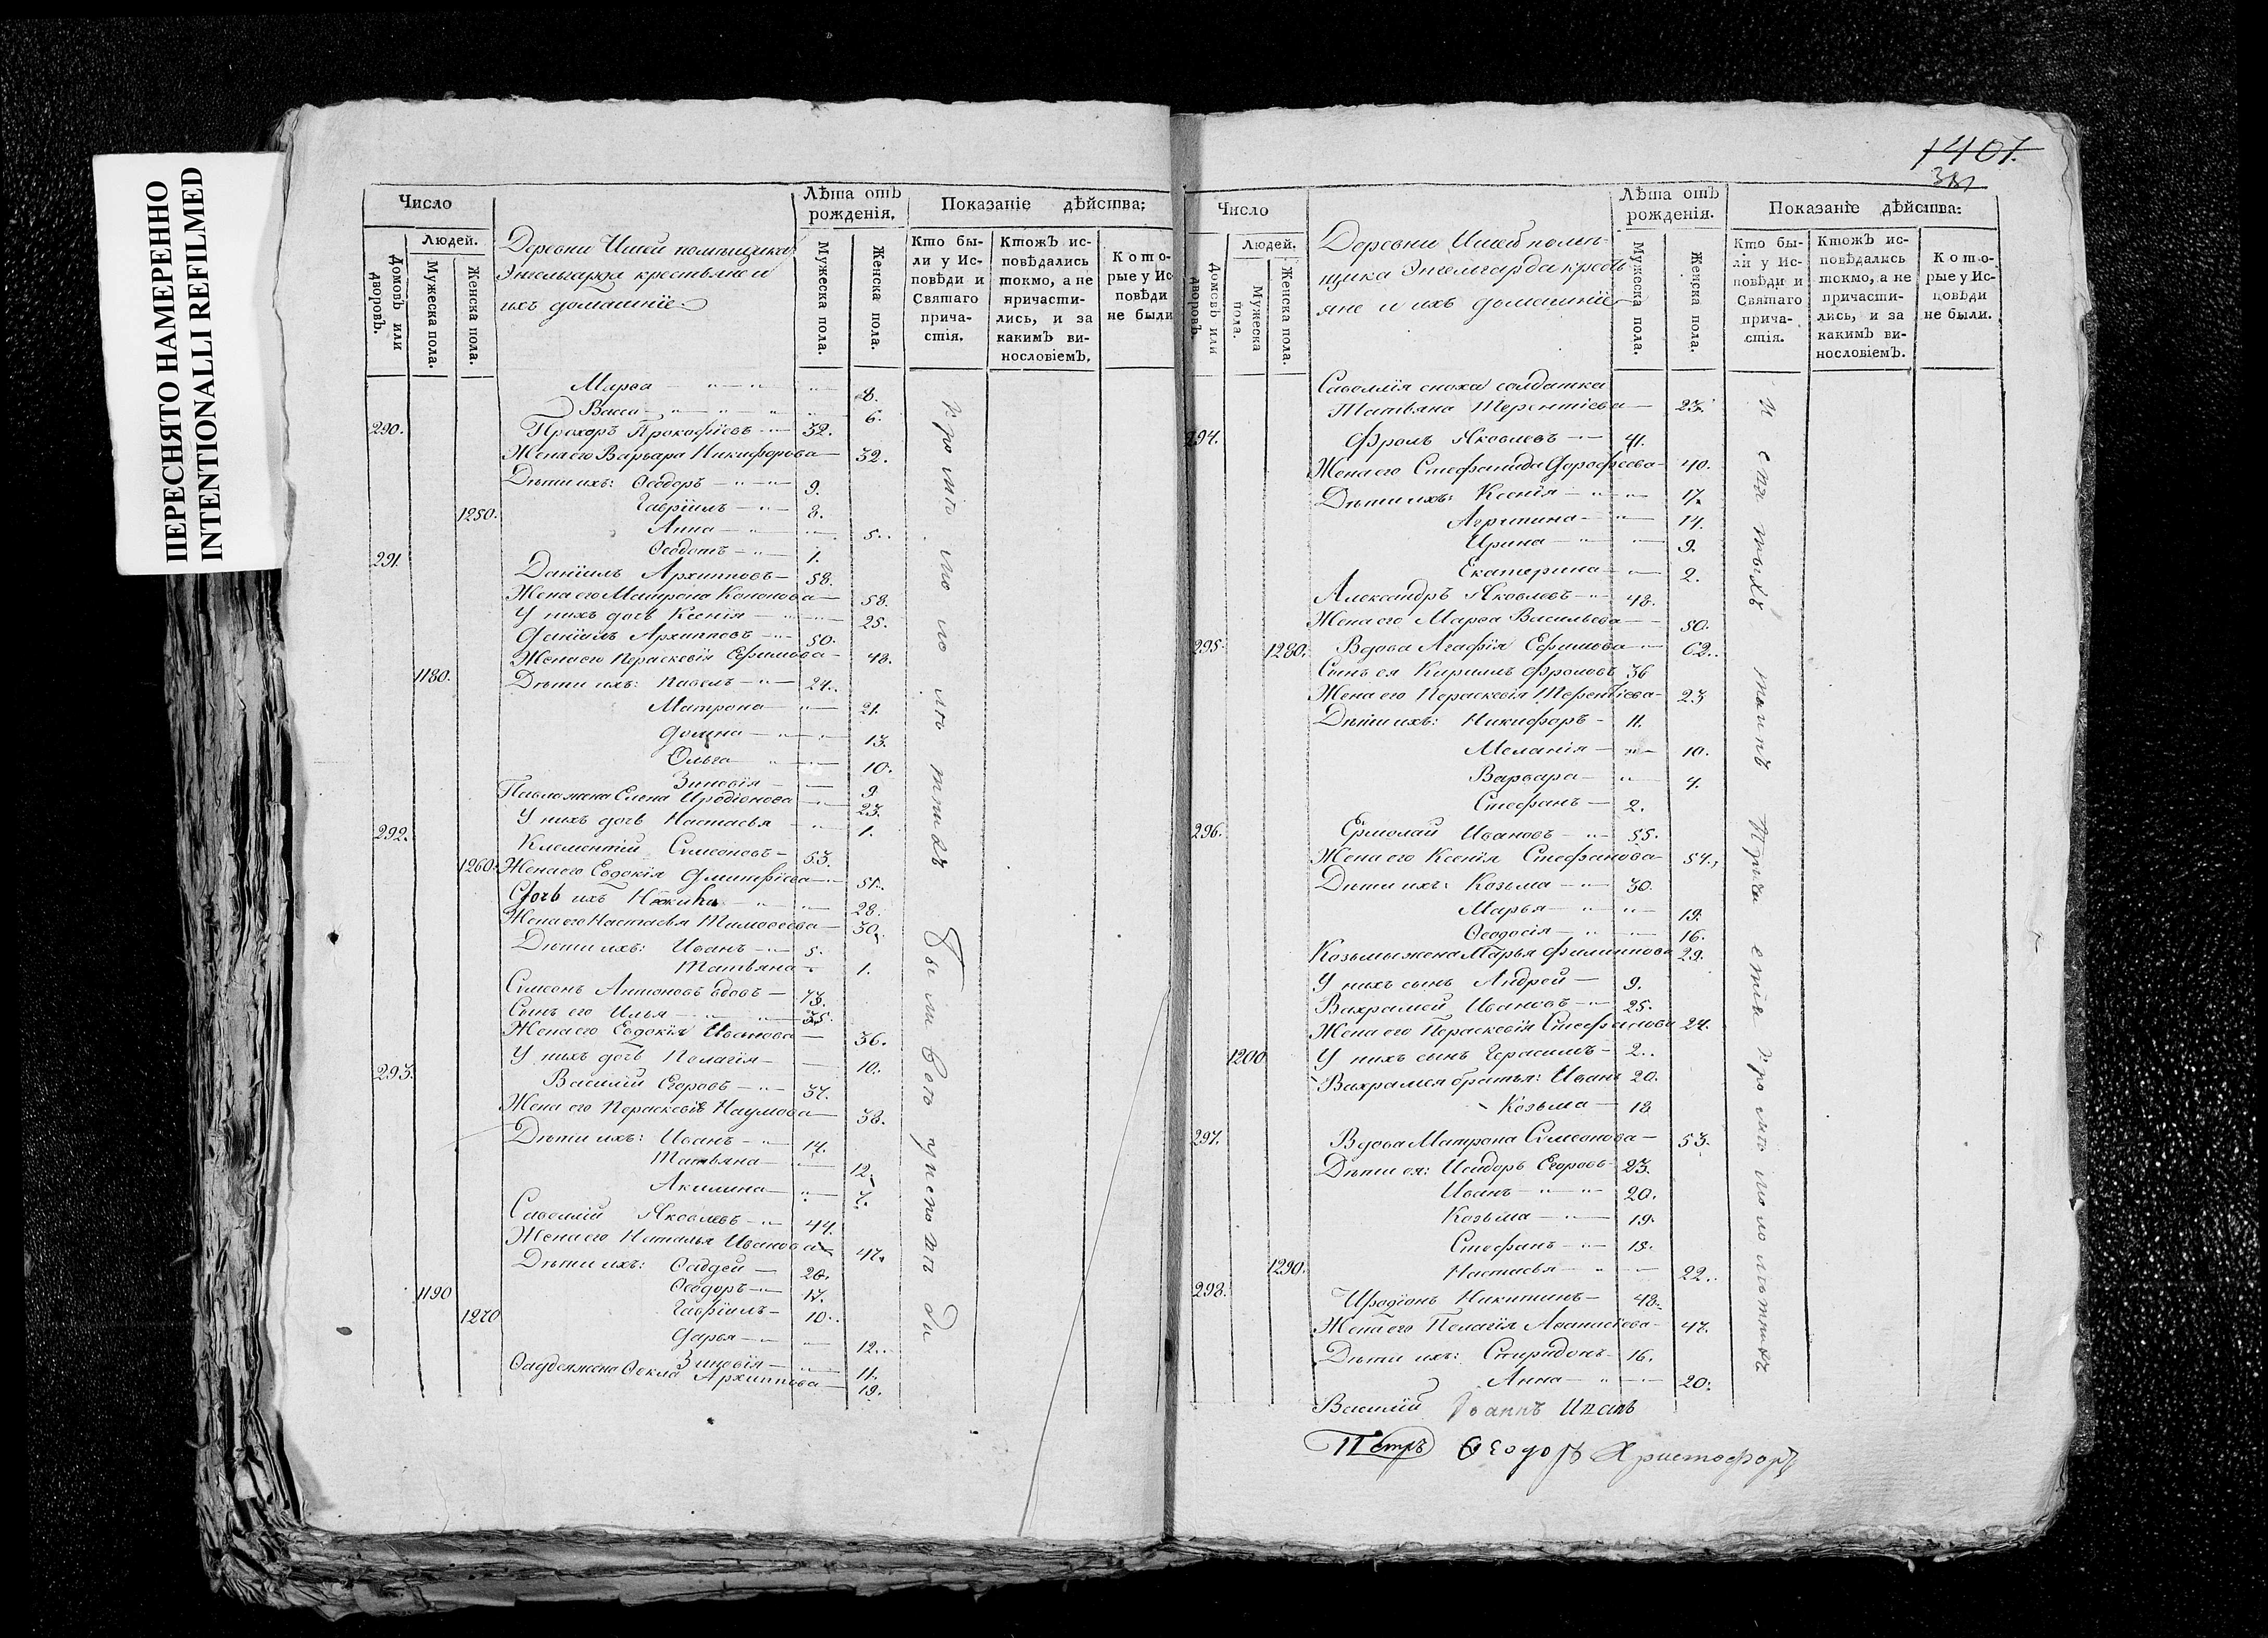 ПЕРЕСНЯТО НАМЕРЕННО
INTENTIONALLI REFILMED
Число
Людей.
Домовъ или дворовъ.
Мужеска пола.
Женска пола.
Деревни Ишей помѣщика
Энгельгарда крестьяне и
ихъ домашніе
Лѣта отъ рожденія.
Мужеска пола.
Женска пола.
Показаніе дѣйства:
Кто были у Исповѣди и Святаго причастія.
Ктожъ исповѣдались токмо, а не причастились, и за какимъ винословіемъ.
Которые у Исповѣди не были
Марѳа 8.
Васса 6.
290. Прохоръ Прокофіевъ 32.
Жена его Варвара Никифорова 32.
Дѣти ихъ: Ѳеодоръ 9.
1250. Гавріилъ 8.
Анна 5.
Ѳеодотъ 1.
291. Даніилъ Архиповъ 58.
Жена его Матрона Кононова 58.
У нихъ дочь Ксенія 25.
Даніилъ Архиповъ 50.
Жена его Параскевія Ефимова 48.
1180. Дѣти ихъ: Павелъ 24.
Матрона 21.
Домна 13.
Ольга 10.
Зиновія 9.
Павла жена Елена Иродіонова 23.
У нихъ дочь Настасья 1.
292. Климентій Симеоновъ 53.
1260. Жена его Евдокія Дмитріева 51.
дочь ихъ 28.
Жена его Настасья Тимоѳеева 30.
Дѣти ихъ: Иванъ 5.
Татьяна 1.
Симеонъ Антоновъ вдовъ 73.
Сынъ его Илья 35.
Жена его Евдокія Иванова 36.
У нихъ дочь Пелагія 10.
293. Василій Егоровъ 37.
Жена его Параскевія Наумова 38.
Дѣти ихъ: Иванъ 14.
Татьяна 12.
Акилина 7.
Савелій Яковлевъ 44.
Жена его Наталья Иванова 47.
Дѣти ихъ: Ѳадѳей 20.
1190 Ѳеодоръ 17.
1270 Гавріилъ 10.
Дарья 12.
Зиновія 11.
Ѳаддея жена Ѳекла Архипова 19.
кромѣ малолѣтнихъ были
1407.
381
Число
Людей.
Домовъ или дворовъ.
Мужеска пола.
Женска пола.
Деревни Ишей помѣ-
щика Энгельгарда кресть
яне и ихъ домашніе
Лѣта отъ рожденія.
Мужеска пола.
Женска пола.
Показаніе дѣйства:
Кто были у Исповѣди и Святаго причастія.
Ктожъ исповѣдались токмо, а не причастились, и за какимъ винословіемъ.
Которые у Исповѣди не были.
Савелія сноха солдатка
Татьяна Терентіева 23.
294. Фролъ Яковлевъ 41.
Жена его Стефанида Дорофеева 40.
Дѣти ихъ: Ксенія 17.
Агрипина 14.
Ирина 9.
Екатерина 2.
Александръ Яковлевъ 48.
Жена его Марѳа Васильева 50.
295. 1280. Вдова Агафія Ефимова 62.
Сынъ ея Кириллъ Фроловъ 36
Жена его Параскевія Терентіева 23
Дѣти ихъ: Никифоръ 11.
Меланія 10.
Варвара 4.
Стефанъ 2.
296. Ермолай Ивановъ 55.
Жена его Ксенія Стефанова 54.
Дѣти ихъ: Козьма 30.
Марья 19.
Ѳеодосія 16.
Козьмы жена Марья Филипова 29.
У нихъ сынъ Андрей 9.
Вахрамей Ивановъ 25.
Жена его Параскевія Стефанова 24.
1200 У нихъ сынъ Герасимъ 2.
Вахрамея братья: Иванъ 20.
Козьма 18
297. Вдова Матрона Симеонова 53.
Дѣти ея: Исидоръ Егоровъ 23.
Иванъ 20.
Козьма 19.
Стефанъ 15.
1290. Настасья 22.
298. Иродіонъ Никитинъ 48.
Жена его Пелагія Аѳанасіева 47.
Дѣти ихъ: Спиридонъ 16.
Анна 20.
и святыхъ таинъ кромѣ малолѣтнихъ
Василій Іоаннъ Иванъ
Петръ Ѳеодоръ Христофоръ